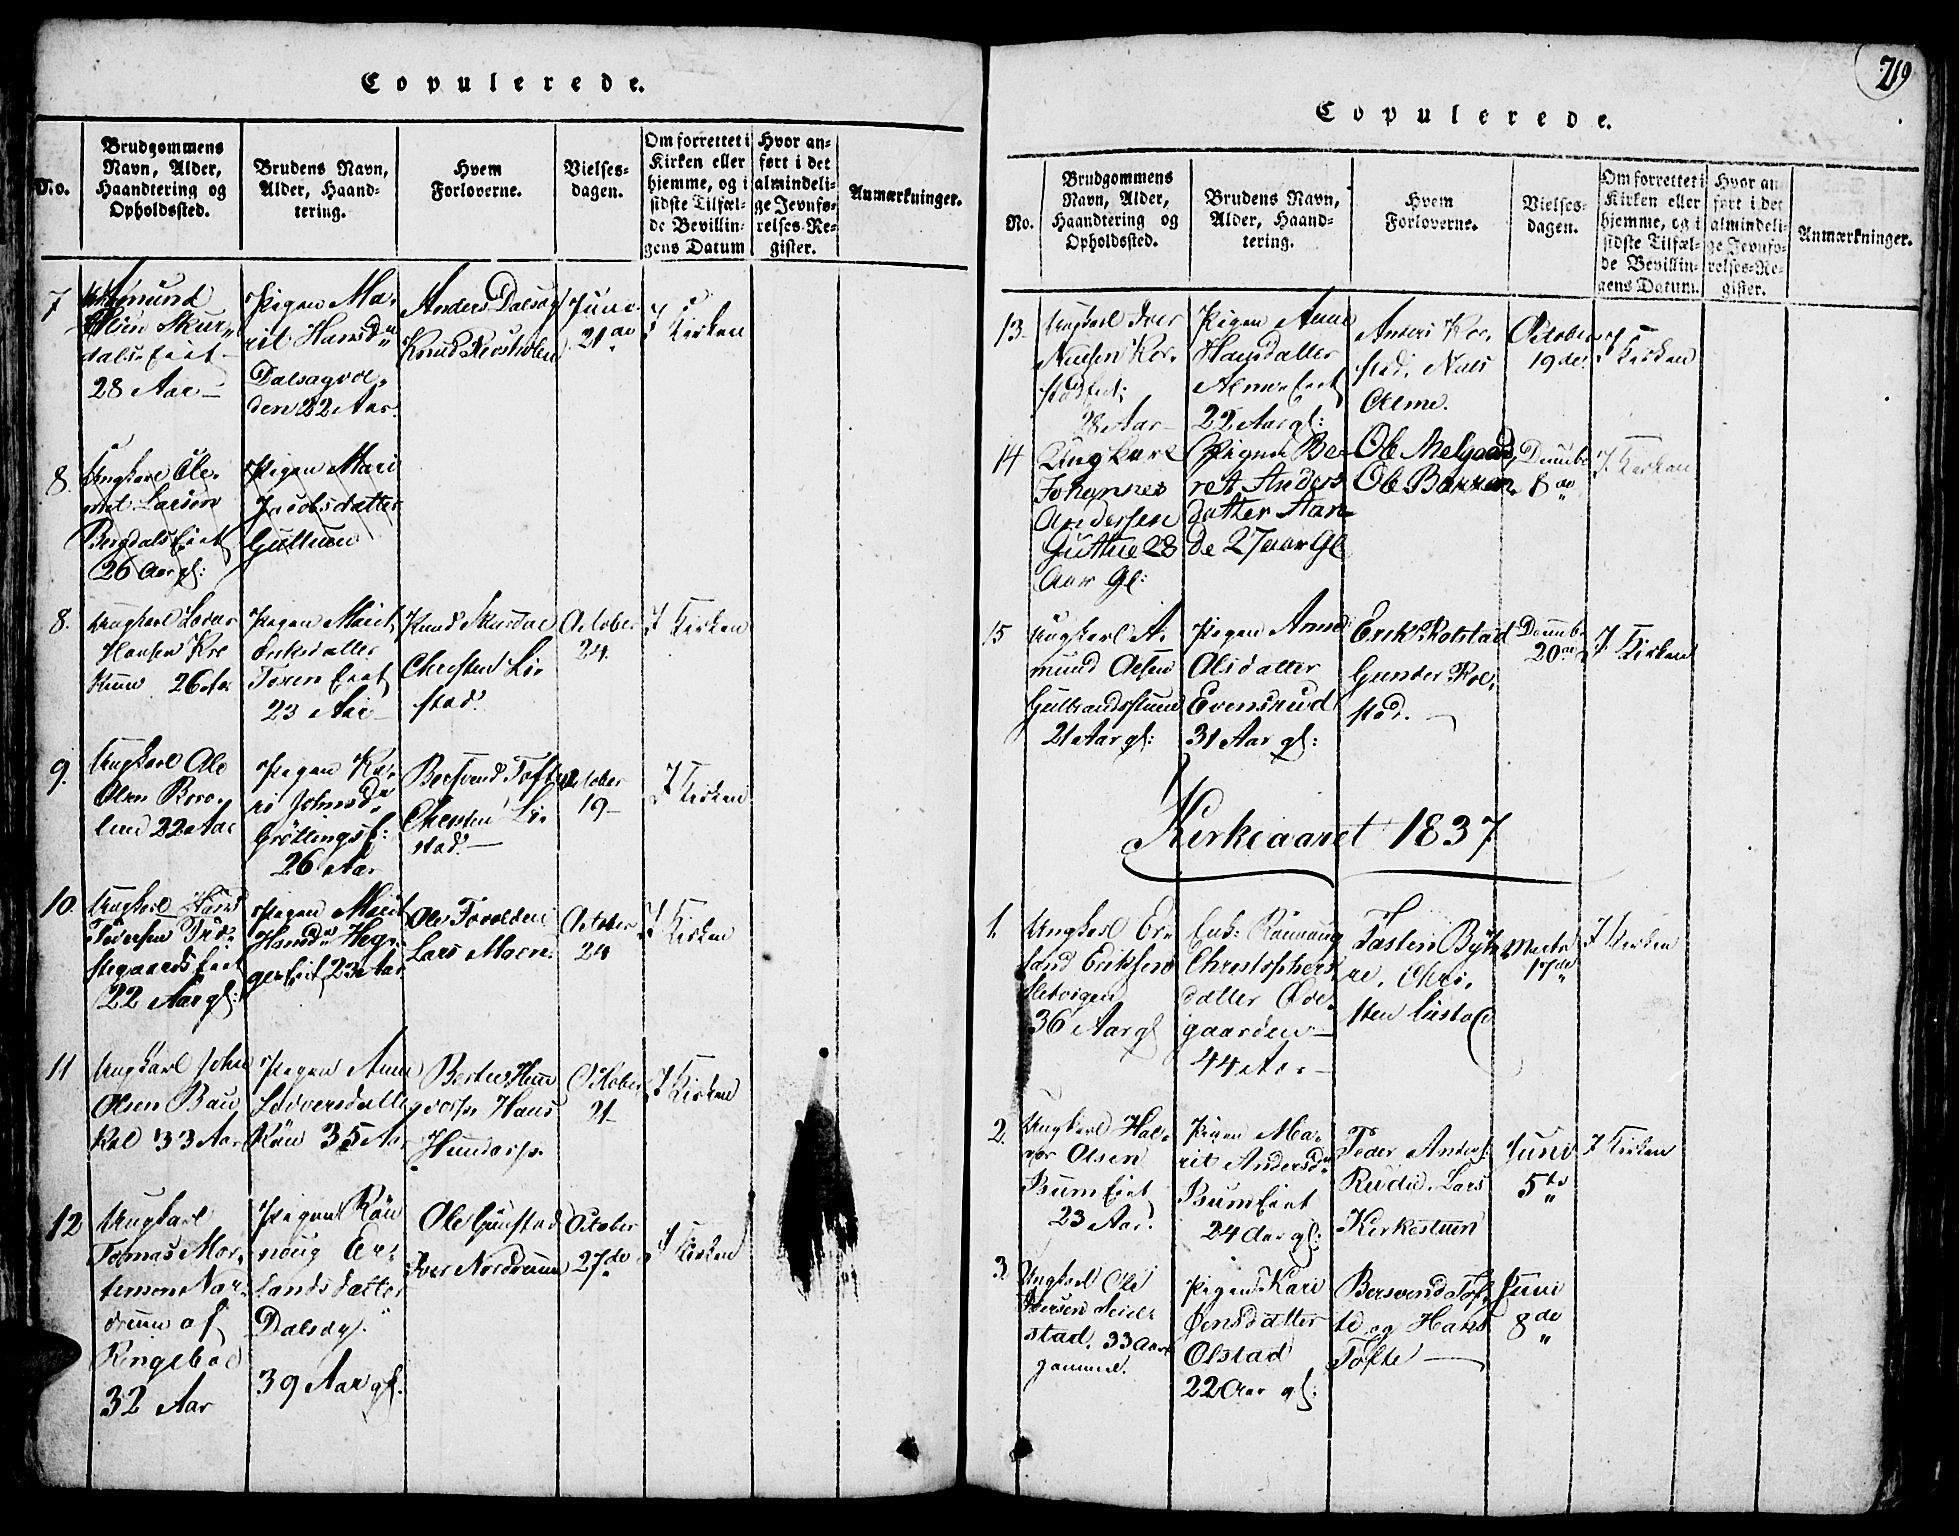 Copulerede.
No.
Brudgommens
Navn, Alder,
Haandtering og
Opholdssted.
Brudens Navn,
Alder, Haand-
tering.
Hvem
Forloverne.
Vielses-
dagen.
Om forrettet i
Kirken eller
hjemme, og i
sidste Tilfæl-
de Bevillin-
gens Datum
Hvor an-
ført i det
almindeli-
ge Jevnfø-
relses-Re-
gister.
Anmærkninger.
7
Amund
Olsen Skur-
dals Eiet
28 Aar
Pigen Ma-
rit Hansdr
Dalsagvol-
den 22 Aar.
Anders Dalsag
Knud
Juni
21de
I Kirken
8.
Ungkarl Cle-
met Larsen
Bergdals Eiet
26 Aar gl:
Pigen Mari
Jacobsdatter
Gullum
8.
Ungkarl
Hansen Kre
Kum 26 Aar
Pigen Marit
Eriksdatter
Toxen Eiet
23 Aar
Knud Skurdal
Christen Li-
stad.
October
24.
I Kirken
9.
Ungkarl Ole
Olsen
22 Aar
Pigen Ka-
ri Johnsdr
Grøttings E:
26 Aar
Bersvend Tofte
Christen Li-
stad.
October
19
I Kirken
10.
Ungkarl Hans
Pedersen
stegaards Eiet
22 Aar gl:
Pigen Marit
Hansdr Heg-
ger Eiet 23 Aar
Ole
Lars
October
24
I Kirken
11
Ungkarl John
Olsen Bau
Kal 33 Aar
Pigen Anne
Lodversdatter
Røn 35 Aar
Hun
dorp. Hans
Hundorp.
October
21
I Kirken
12
Ungkarl
Tomas Mor-
tensen Nor-
drum af
Ringeboe
32 Aar
Pigen Røn
noug Er-
landsdatter
Dalsag.
39 Aar gl.
Ole Gunstad
Iver Nordrum
October
27de
I Kirken
219
Copulerede.
No.
Brudgommens
Navn, Alder,
Haandtering og
Opholdssted.
Brudens Navn,
Alder, Haand-
tering.
Hvem
Forloverne.
Vielses-
dagen.
Om forrettet i
Kirken eller
hjemme, og i
sidste Tilfæl-
de Bevillin-
gens Datum.
Hvor an-
ført i det
almindeli-
ge Jevnfø-
relses-Re-
gister.
Anmærkninger.
13.
Ungkarl Iver
Nielsen Kor-
stad Eiet
28 Aar
Pigen Anne
Hansdatter
Alme Eiet
22 Aar gl:
Anders Kor-
stad. Niels
Alme.
October
19de
I Kirken
14
Ungkarl
Johannes
Andersen
Guttue 28
Aar Gl:
Pigen Be-
ret Anders
datter Aan-
de 27 aar Gl
Ole Melgaard,
Ole
December
8de
I Kirken
15
Ungkarl A-
mund Olsen
21 Aar gl:
Pigen Anne
Olsdatter
Evensrud
31 Aar gl:
Erik Rolstad
Gunder Rol-
stad.
December
20de
I Kirken
Kirkeaaret 1837
1.
Ungkarl Er-
land Eriksen
36 Aar gl
Enk: Rønnaug
Christophers
datter Øde-
gaarden
44 Aar
Tosten Byk-
re. Chri-
sten Listad
Marts
17de
I Kirken
2.
Ungkarl Hal-
vor Olsen
Bum Eiet
23 Aar.
Pigen Ma-
rit Andersdr
Bum Eiet
24 Aar gl:
Peder Anders.
Rudie. Lars
Kirkestuen
Juni
5te
I Kirken
3.
Ungkarl Ole
Iversen
stad. 33 Aar
gammel.
Pigen Kari
Jensdatter
Olstad
22 Aar gl:
Bersvend Tof-
te og Hans
Tofte
Juni
8de